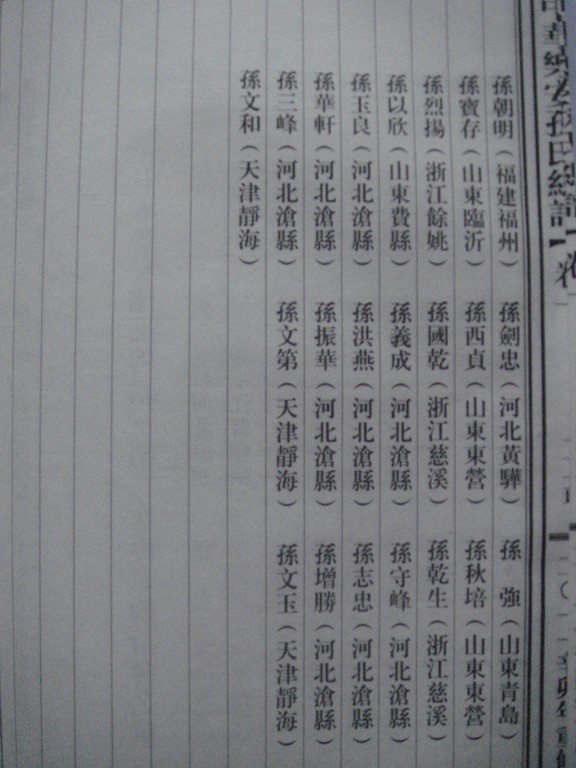 中華樂安孫氏總譜
孫朝明（福建福州） 孫劍忠（河北黃驊） 孫　強（山東青島）
孫寶存（山東臨沂） 孫西貞（山東東營） 孫秋培（山東東營）
孫烈揚（浙江餘姚） 孫國乾（浙江慈溪） 孫乾生（浙江慈溪）
孫以欣（山東費縣） 孫義成（河北滄縣） 孫守峰（河北滄縣）
孫玉良（河北滄縣） 孫洪燕（河北滄縣） 孫志忠（河北滄縣）
孫華軒（河北滄縣） 孫振華（河北滄縣） 孫增勝（河北滄縣）
孫三峰（河北滄縣） 孫文第（天津靜海） 孫文玉（天津靜海）
孫文和（天津靜海）